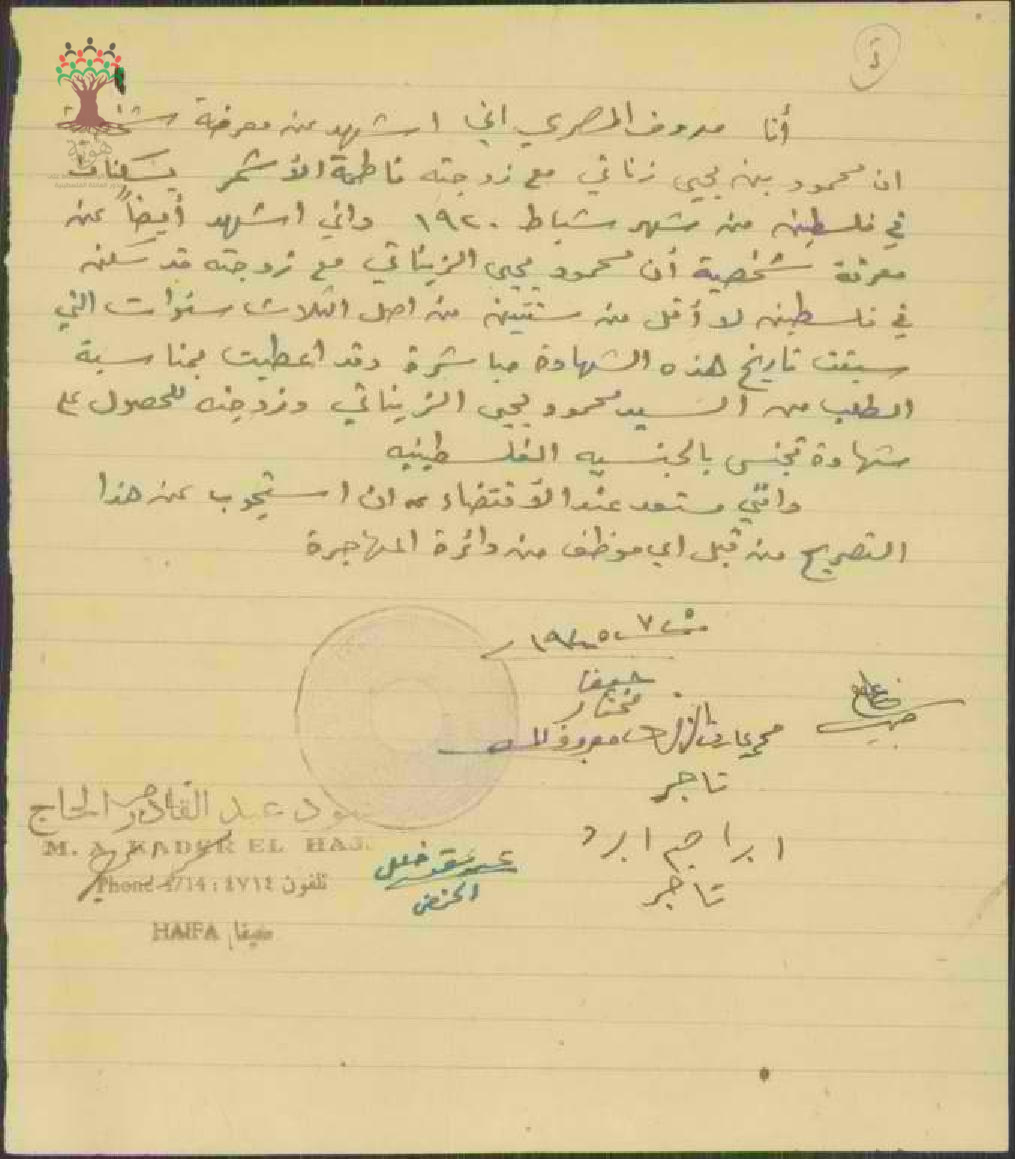 أنا معروف المصري اني اشهد عن معرفة شخصية
ان محمود بن يحيى زناتي مع زوجته فاطمة الأشمر يسكنان
في فلسطين من شهر شباط ١٩٢٠ واني اشهد أيضاً عن
معرفة شخصية أن محمود يحيى الزيناتي مع زوجته قد سكن
في فلسطين لا أقل من سنتين من اصل الثلاث سنوات التي
سبقت تاريخ هذه الشهادة مباشرة وقد اعطيت بمناسبة
الطلب من السيد محمود يحيى الزيناتي وزوجته للحصول على
شهادة تجنس بالجنسيه الفلسطينيه
وانني مستعد عند الاقتضاء ان استجوب عن هذا
التصريح من قبل اي موظف من دائرة المهاجرة
حيفا
مختار
معروف
تاجر
ابراهيم
تاجر
عبد القادر الحاج
M. A. KADER EL HAJ.
Phone 4714 : ٤٧١٤ تلفون
HAIFA حيفا
هوية